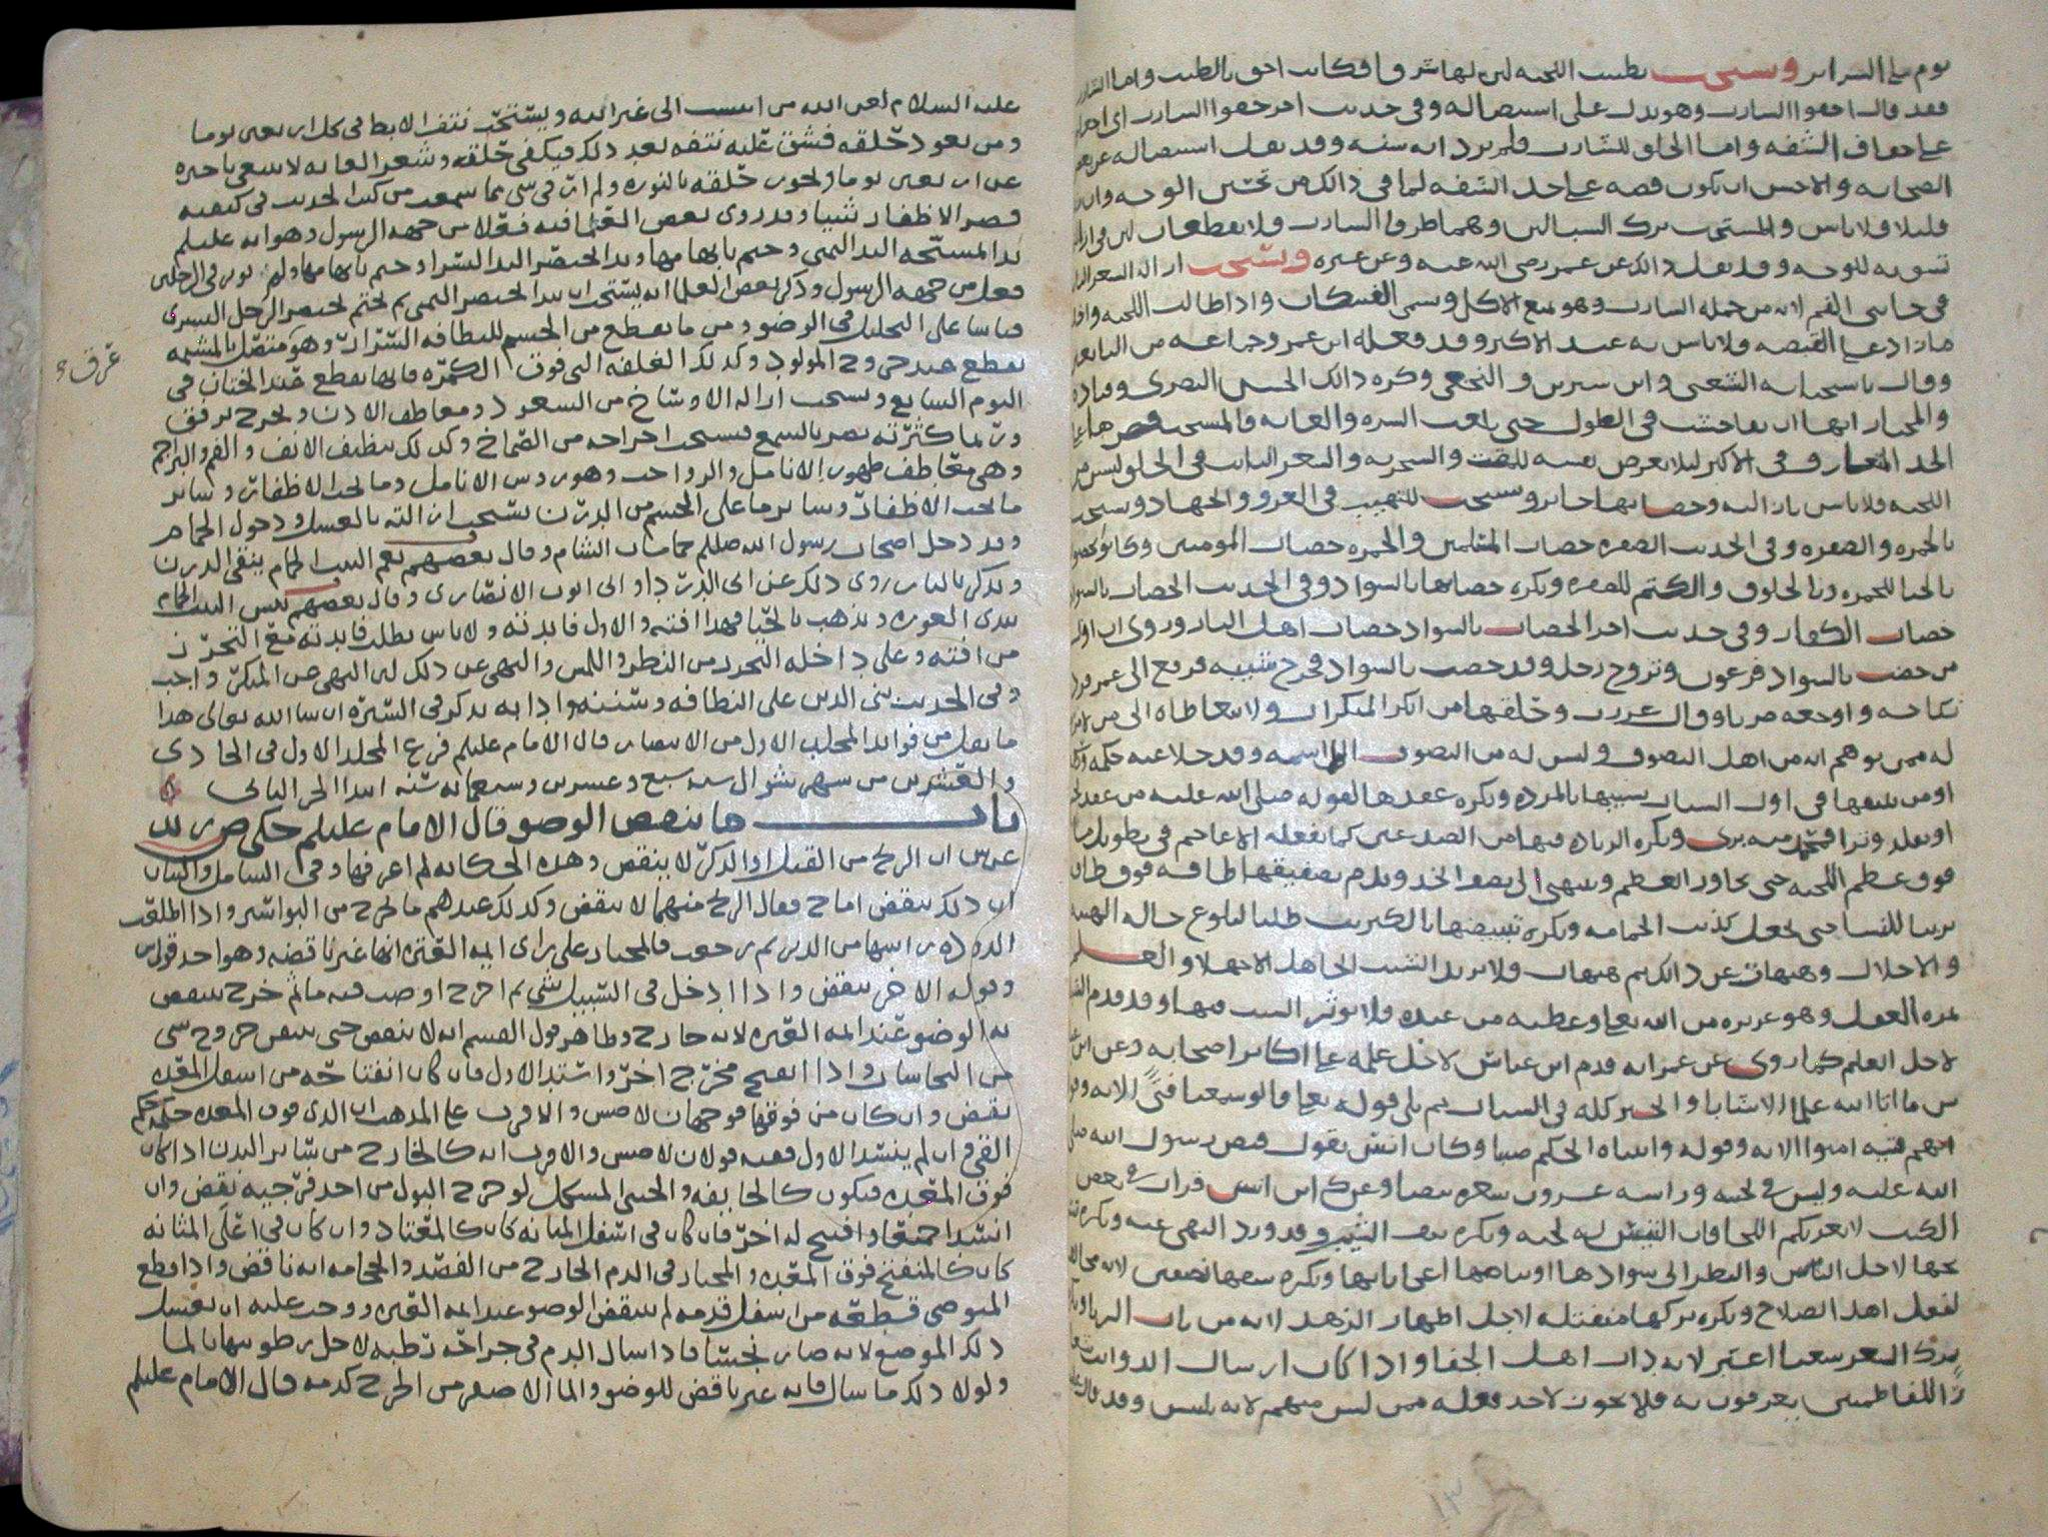 يوم على السراير ويستحب تطييب اللحية لان لها شرفا فكانت احق بالطيب واما الشارب
فقد قال احفوا الشارب وهو يدل على استيصاله وفي حديث اخر حفوا الشارب اي اجعلوا
على حفاف الشفه واما الحلق للشارب فلم يرد انه سنه وقد نقل استيصاله عن بعض
الصحابه والاحسن ان يكون قصه على حد الشفه لما في ذالك من تحسين الوجه وان
قليلا فلا باس والمستحب ترك السبالين وهما طرفا الشارب ولا يقطعان لان في
تشويه للوجه وقد نقل ذالك عن عمر رضي الله عنه وعن غيره ويستحب ازالة الشعر
في جانبي الفم لانه من جمله الشارب وهو يمنع الاكل ويسمى الفنيكان واذا طالت اللحيه
ما زاد على القبضه فلا باس به عند الاكثر وقد فعله ابن عمر وجماعه من التابعين
وقال باستحبابه الشعبي وابن سيرين والنخعي وكره ذالك الحسن البصري وقتاده
والمختار انها ان تفاحشت في الطول حتى بلغت السره والعانه فالمستحب قصرها
الحد المتعارف في الاكثر ليلا يعرض نفسه للمقت والسخريه والشعر النابت في الحلق ليس من
اللحيه فلا باس بازالته وخضابها جايز ويستحب للتهييب في الغزو والجهاد ويستحب
بالحمره والصفره وفي الحديث الصفره خضاب المسلمين والحمره خضاب المومنين وكانوا
بالحنا للحمره وبالخلوق والكتم للصفره ويكره خضابها بالسواد وفي الحديث الخضاب بالسواد
خضاب الكفار وفي حديث اخر الخضاب بالسواد خضاب اهل النار وروي ان اول
من خضب بالسواد فرعون وتزوج رجل وقد خضب بالسواد فخرج شيبه فرفع الى عمر فرد
نكاحه واوجعه ضربا وقال غررت وحلقها من انكر المنكرات ولا يتعاطاه الى من
له ممن يوهم انه من اهل التصوف وليس له من التصوف الا اسمه وقد خلا عنه حكمه
او من ينتفها في اول الشباب تشبيها بالمرده ويكره عقدها لقوله صلى الله عليه من عقد
او تقلد وترا فمحمد منه بري ويكره الزياده فيها من الصدغين كما يفعله الاعاجم في تطويل
فوق عظم اللحيه حتى يجاوز العظم وينتهي الى نصف الخد ويلزم تصفيفها طاقه فوق طاقه
تزينا للنسا حتى تجعل كذنب الحمامه ويكره تبييضها بالكبريت طلبا لبلوغ حاله الهيبه
والاجلال وهيهات عن ذالك هيهات ولا يزيد الشيب الجاهل الا جهلا والعلم
ثمره العقل وهو غريزه من الله تعالى وعطيه من عنده ولا يوثر الشيب فيها وقد قدم
لاجل العلم كما روي عن عمر انه قدم ابن عباس لاجل علمه على اكابر اصحابه وعن ابن
س ما اتا الله علما الا شابا والخير كله في الشباب ثم تلى قوله تعالى قالوا سمعنا فتى الايه
انهم فتيه امنوا الايه وقوله واتيناه الحكم صبيا وكان انس يقول قبض رسول الله
الله عليه وليس في لحيته وراسه عشرون شعره بيضا وعن مالك ابن انس قرات في بعض
الكتب لا يغرنكم اللحا فان التيس له لحيه ويكره نتف الشيب وقد ورد النهي عنه ويكره
لاجل الناس والنظر الى سوادها او بياضها اعجابا بها ويكره شعثها تصنعا
لفعل اهل الصلاح ويكره تركها منفتله لاجل اظهار الزهد لانه من باب الريا
ترك الشعر شعثا اغبر لانه داب اهل الجفا واذا كان ارسال الدوايب
للفاطميين يعرفون به فلا يجوز لاحد فعله ممن ليس منهم لانه تلبيس وقد قال
عليه السلام لعن الله من انتسب الى غير ابيه ويستحب نتف الابط في كل اربعين يوما
ومن تعود حلقه فشق عليه نتفه بعد ذلك فيكفي حلقه وشعر العانه لا ينبغي تاخيره
عن اربعين يوما ويجوز حلقه بالنوره ولم ار في شي مما سمعت من كتب الحديث في كيفيه
قص الاظفار شيا وقد روى بعض الفقها فيه فعلا من جهه الرسول وهو انه عليلم
بدا بمسبحه اليد اليمنى وختم بابهامها وبدا بخنصر اليد اليسرا وختم بابهامها ولم يوثر في الرجلين
فعل من جهه الرسول وذكر بعض العلما انه يستحب ان يبدا بخنصر اليمنى ثم يختم بخنصر الرجل اليسرى
قياسا على التخليل في الوضو ومن ما يقطع من الجسم للنظافه السرر وهو متصل بالمشيمه
يقطع عند خروج المولود وكذلك الغلفه التي فوق الكمره فانها تقطع عند الختان في
اليوم السابع ويستحب ازاله الاوساخ من الشعور ومعاطف الاذن ويخرج برفق
وربما كثرته تضر بالسمع فيستحب اخراجه من الصماخ وكذلك تنظيف الانف والفم والبراجم
وهي معاطف ظهور الانامل والرواجب وهي روس الانامل وما تحت الاظفار وساير
ما تحت الاظفار وساير ما على الجسم من الدرن تستحب ازالته بالغسل ودخول الحمام
وقد دخل اصحاب رسول الله صللم حمامات الشام وقال بعضهم نعم البيت الحمام ينقي الدرن
ويذكر بالنار روي ذلك عن ابي الدرداء وابي ايوب الانصاري وقال بعضهم بيس البيت الحمام
يبدي العوره ويذهب بالحيا فهذا افته والاول فايدته ولا باس بطلب فايدته مع التحرز
من افته وعلى داخله التحرز من النظر واللمس والنهي عن ذلك لان النهي عن المنكر واجب
وفي الحديث بني الدين على النظافه وسننه وادابه تذكر في السيره ان شا الله تعالى هذا
ما نقل من فوايد المجلد الاول من الانتصار قال الامام عليلم فرغ المجلد الاول في الحادي
والعشرين من شهر شوال سنه سبع وعشرين وسبعمايه سنه ابتدا الجز الثاني
باب ما ينقض الوضو قال الامام عليلم حكي ص زيد
عن س ان الريح من القبل او الذكر لا ينقض وهذه الحكايه لم اعرفها وفي الشامل والبيان
ان ذلك ينقض اما ح فقال الريح منهما لا ينقض وكذلك عندهم ما يخرج من البواسير واذا اطلعت
الدوده راسها من الدبر ثم رجعت فالمختار على راي ايمه العتره انها غير ناقضه وهو احد قولي س
وقوله الاخر ينقض واذا ادخل في السبيل شي ثم اخرج او صب فيه ماثم خرج ينقض
به الوضو عند ايمه العتره لانه خارج وظاهر قول القسم انه لا ينقض حتى ينقض خروج شي
من النجاسات واذا انفتح مخرج اخر واشتد الاول فان كان انفتاحه من اسفل المعده
نقض وان كان من فوقها فوجهان لاص س والاقرب على المذهب ان الذي فوق المعده حكمه حكم
القي وان لم ينسد الاول ففيه قولان لاص س والاقرب انه كالخارج من ساير البدن اذا كان
فوق المعده فيكون كالجايفه والخنثى المشكل لو خرج البول من احد فرجيه نقض وان
انسدا جميعا وافتح له اخر فان كان في اسفل المثانه كان كالمعتاد وان كان في اعلى المثانه
كان كالمنفتح فوق المعده والمختار في الدم الخارج من الفصد والحجامه انه ناقض واذا قطع
المتوضي قطعه من اسفل قدمه لم ينقض الوضو عند ايمه العتره ووجب عليه ان يغسل
ذلك الموضع لانه صار نجسا فاذا سال الدم في جراحه رطبه لاجل رطوبتها بالما
ولولا ذلك ما سال فانه غير ناقض للوضو والما الاصفر من الجرح كدمه قال الامام عليلم